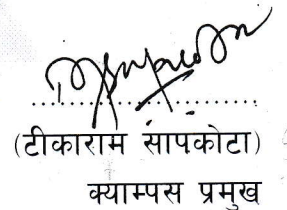 (टीकाराम सापकोटा)
क्याम्पस प्रमुख